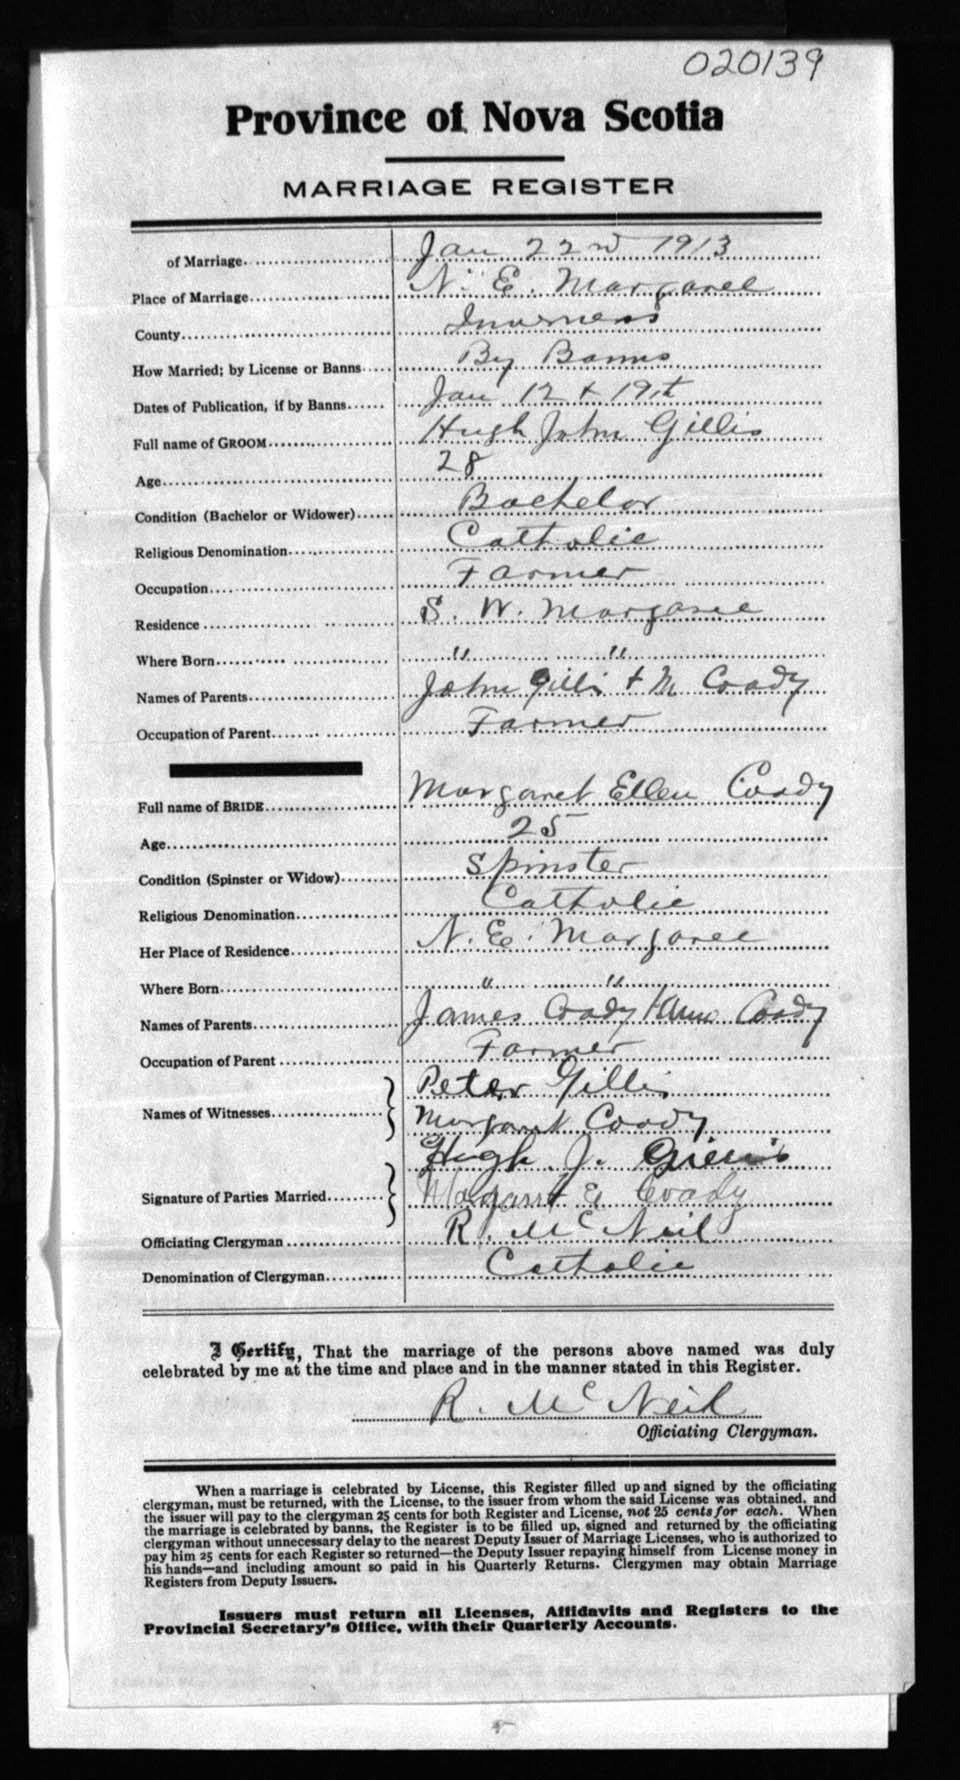 020139
Province of Nova Scotia
MARRIAGE REGISTER
of Marriage Jan 22nd 1913
Place of Marriage N. E. Margaree
County Inverness
How Married; by License or Banns By Banns
Dates of Publication, if by Banns Jan 12 + 19th
Full name of GROOM Hugh John Gillis
Age 28
Condition (Bachelor or Widower) Bachelor
Religious Denomination Catholic
Occupation Farmer
Residence S. W. Margaree
Where Born " "
Names of Parents John Gillis + M Coady
Occupation of Parent Farmer
Full name of BRIDE Margaret Ellen Coady
Age 25
Condition (Spinster or Widow) Spinster
Religious Denomination Catholic
Her Place of Residence N. E. Margaree
Where Born " "
Names of Parents James Coady + Ann Coady
Occupation of Parent Farmer
Peter Gillis
Names of Witnesses Margaret Coady
Hugh J. Gillis
Signature of Parties Married Margaret E Coady
Officiating Clergyman R. McNeil
Denomination of Clergyman Catholic
I Certify, That the marriage of the persons above named was duly
celebrated by me at the time and place and in the manner stated in this Register.
R. McNeil
Officiating Clergyman.
When a marriage is celebrated by License, this Register filled up and signed by the officiating
clergyman, must be returned, with the License, to the issuer from whom the said License was obtained, and
the issuer will pay to the clergyman 25 cents for both Register and License, not 25 cents for each. When
the marriage is celebrated by banns, the Register is to be filled up, signed and returned by the officiating
clergyman without unnecessary delay to the nearest Deputy Issuer of Marriage Licenses, who is authorized to
pay him 25 cents for each Register so returned—the Deputy Issuer repaying himself from License money in
his hands—and including amount so paid in his Quarterly Returns. Clergymen may obtain Marriage
Registers from Deputy Issuers.
Issuers must return all Licenses, Affidavits and Registers to the
Provincial Secretary's Office, with their Quarterly Accounts.